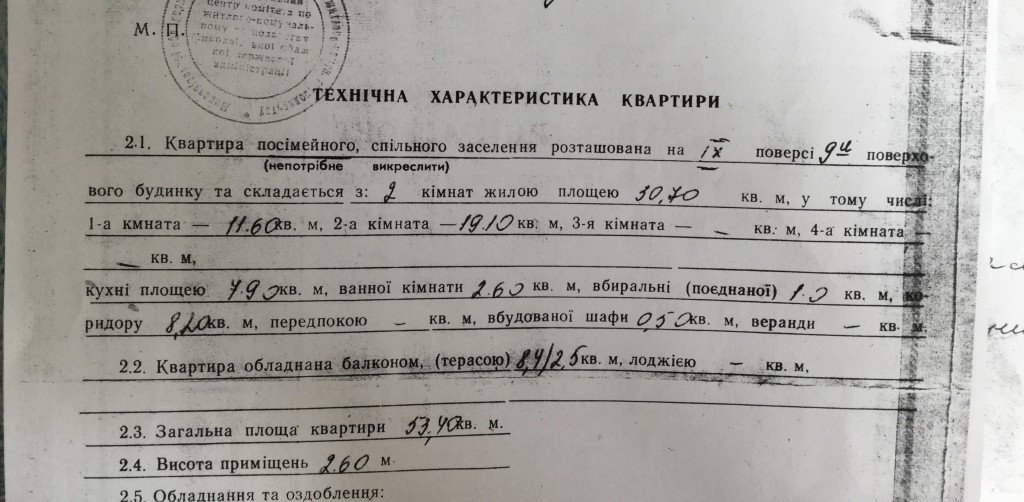 центр комітету по
житлово-комуналь-
адміністрації
М. П.
ТЕХНІЧНА ХАРАКТЕРИСТИКА КВАРТИРИ
2.1. Квартира посімейного, спільного заселення розташована на IX поверсі 9ти поверхо-
(непотрібне викреслити)
вого будинку та складається з: 2 кімнат жилою площею 30,70 кв. м, у тому числі:
1-а кмната — 11.60 кв. м, 2-а кімната — 19.10 кв. м, 3-я кімната — – кв. м, 4-а кімната
— кв. м,
кухні площею 7.90 кв. м, ванної кімнати 2.60 кв. м, вбиральні (поєднаної) 1.0 кв. м, ко-
ридору 8,20 кв. м, передпокою – кв. м, вбудованої шафи 0,50 кв. м, веранди – кв. м.
2.2. Квартира обладнана балконом, (терасою) 8,4/2,5 кв. м, лоджією – кв. м,
2.3. Загальна площа квартири 53,40 кв. м.
2.4. Висота приміщень 2.60 м
2.5. Обладнання та оздоблення: